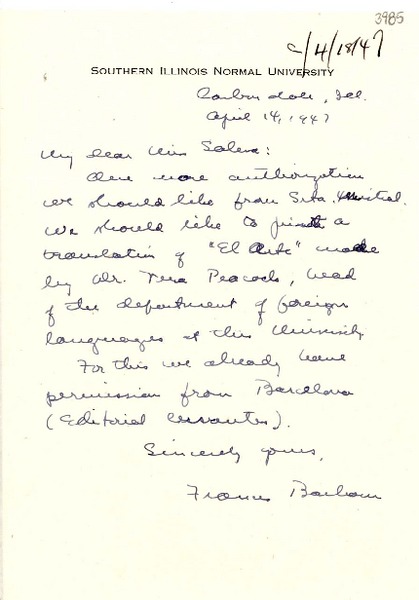 3985
c/4/18/47
SOUTHERN ILLINOIS NORMAL UNIVERSITY
Carbondale, Ill.
April 14, 1947
My dear Miss
One more authorization
we should like from Srta. Mistral.
We should like to print a
translation of "El Arte" made
by Dr. Vera Peacock, head
of the department of foreign
languages at this University
For this we already have
permission from Barcelona
(Editorial Cervantes).
Sincerely yours,
Frances Barbour